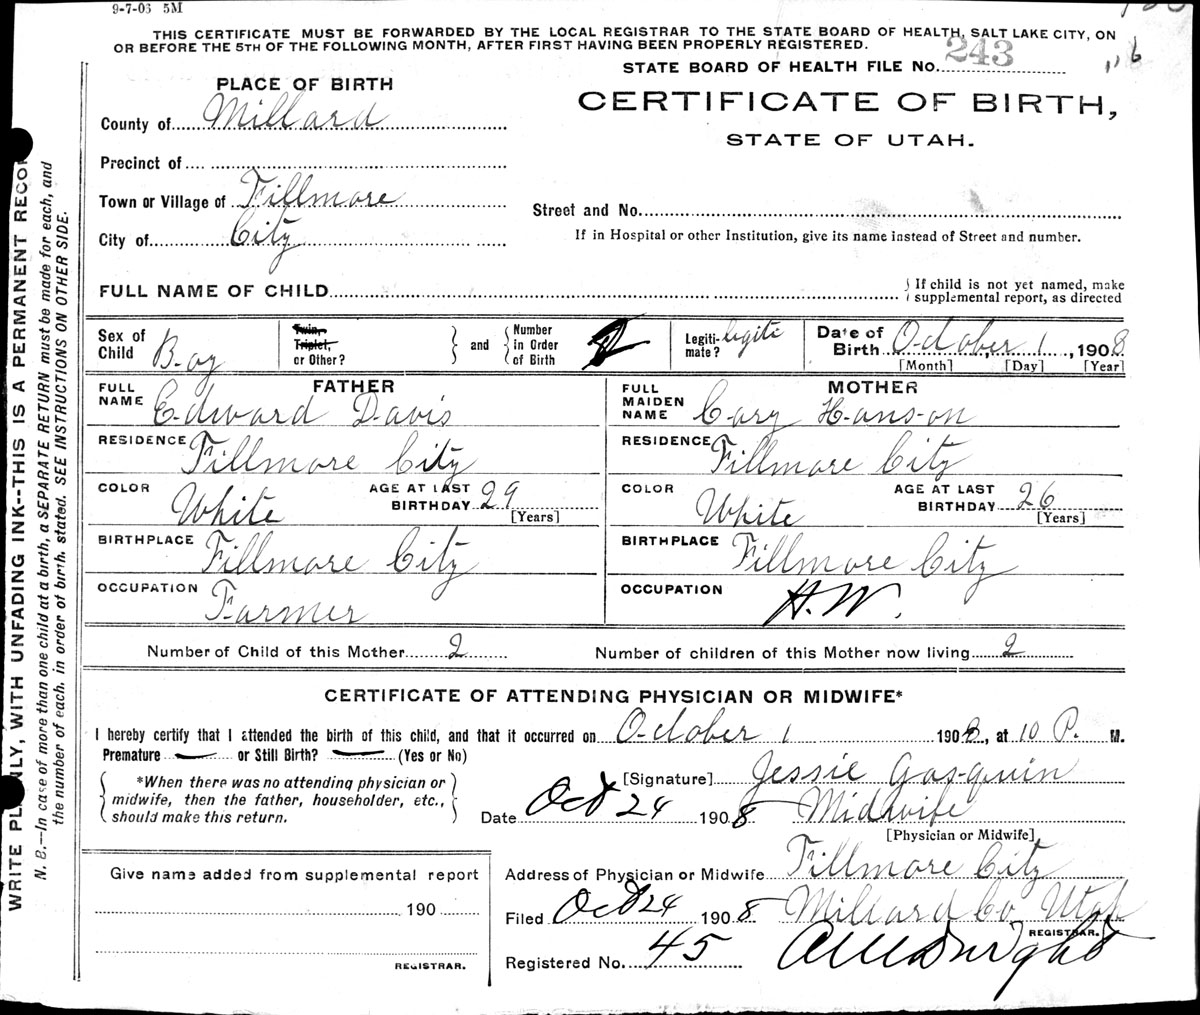 9-7-03 5M
THIS CERTIFICATE MUST BE FORWARDED BY THE LOCAL REGISTRAR TO THE STATE BOARD OF HEALTH, SALT LAKE CITY, ON
OR BEFORE THE 5TH OF THE FOLLOWING MONTH, AFTER FIRST HAVING BEEN PROPERLY REGISTERED.
STATE BOARD OF HEALTH FILE NO. 243
PLACE OF BIRTH
CERTIFICATE OF BIRTH,
STATE OF UTAH.
County of Millard
Precinct of
Town or Village of Fillmore
City of City
Street and No.
If in Hospital or other Institution, give its name instead of Street and number.
FULL NAME OF CHILD
If child is not yet named, make
supplemental report, as directed
Sex of Child Boy
Twin, Triplet, or Other?
and
Number in Order of Birth 2
Legiti-mate? legiti
Date of Birth October 1, 1908
[Month] [Day] [Year]
FATHER
FULL NAME Edward Davis
RESIDENCE Fillmore City
COLOR White
AGE AT LAST BIRTHDAY 29
[Years]
BIRTHPLACE Fillmore City
OCCUPATION Farmer
MOTHER
FULL MAIDEN NAME Cary Hanson
RESIDENCE Fillmore City
COLOR White
AGE AT LAST BIRTHDAY 26
[Years]
BIRTHPLACE Fillmore City
OCCUPATION H.W.
Number of Child of this Mother 2
Number of children of this Mother now living 2
CERTIFICATE OF ATTENDING PHYSICIAN OR MIDWIFE*
I hereby certify that I attended the birth of this child, and that it occurred on October 1 1908, at 10 P. M.
Premature — or Still Birth? — (Yes or No)
*When there was no attending physician or
midwife, then the father, householder, etc.,
should make this return.
[Signature] Jessie Gasquin
Date Oct 24 1908 Midwife
[Physician or Midwife]
Address of Physician or Midwife Fillmore City
Filed Oct 24 1908 Millard Co Utah
REGISTRAR.
Registered No. 45
Give name added from supplemental report
190
REGISTRAR.
WRITE PLAINLY, WITH UNFADING INK--THIS IS A PERMANENT RECOR
N. B.—In case of more than one child at a birth, a SEPARATE RETURN must be made for each, and
the number of each, in order of birth, stated. SEE INSTRUCTIONS ON OTHER SIDE.